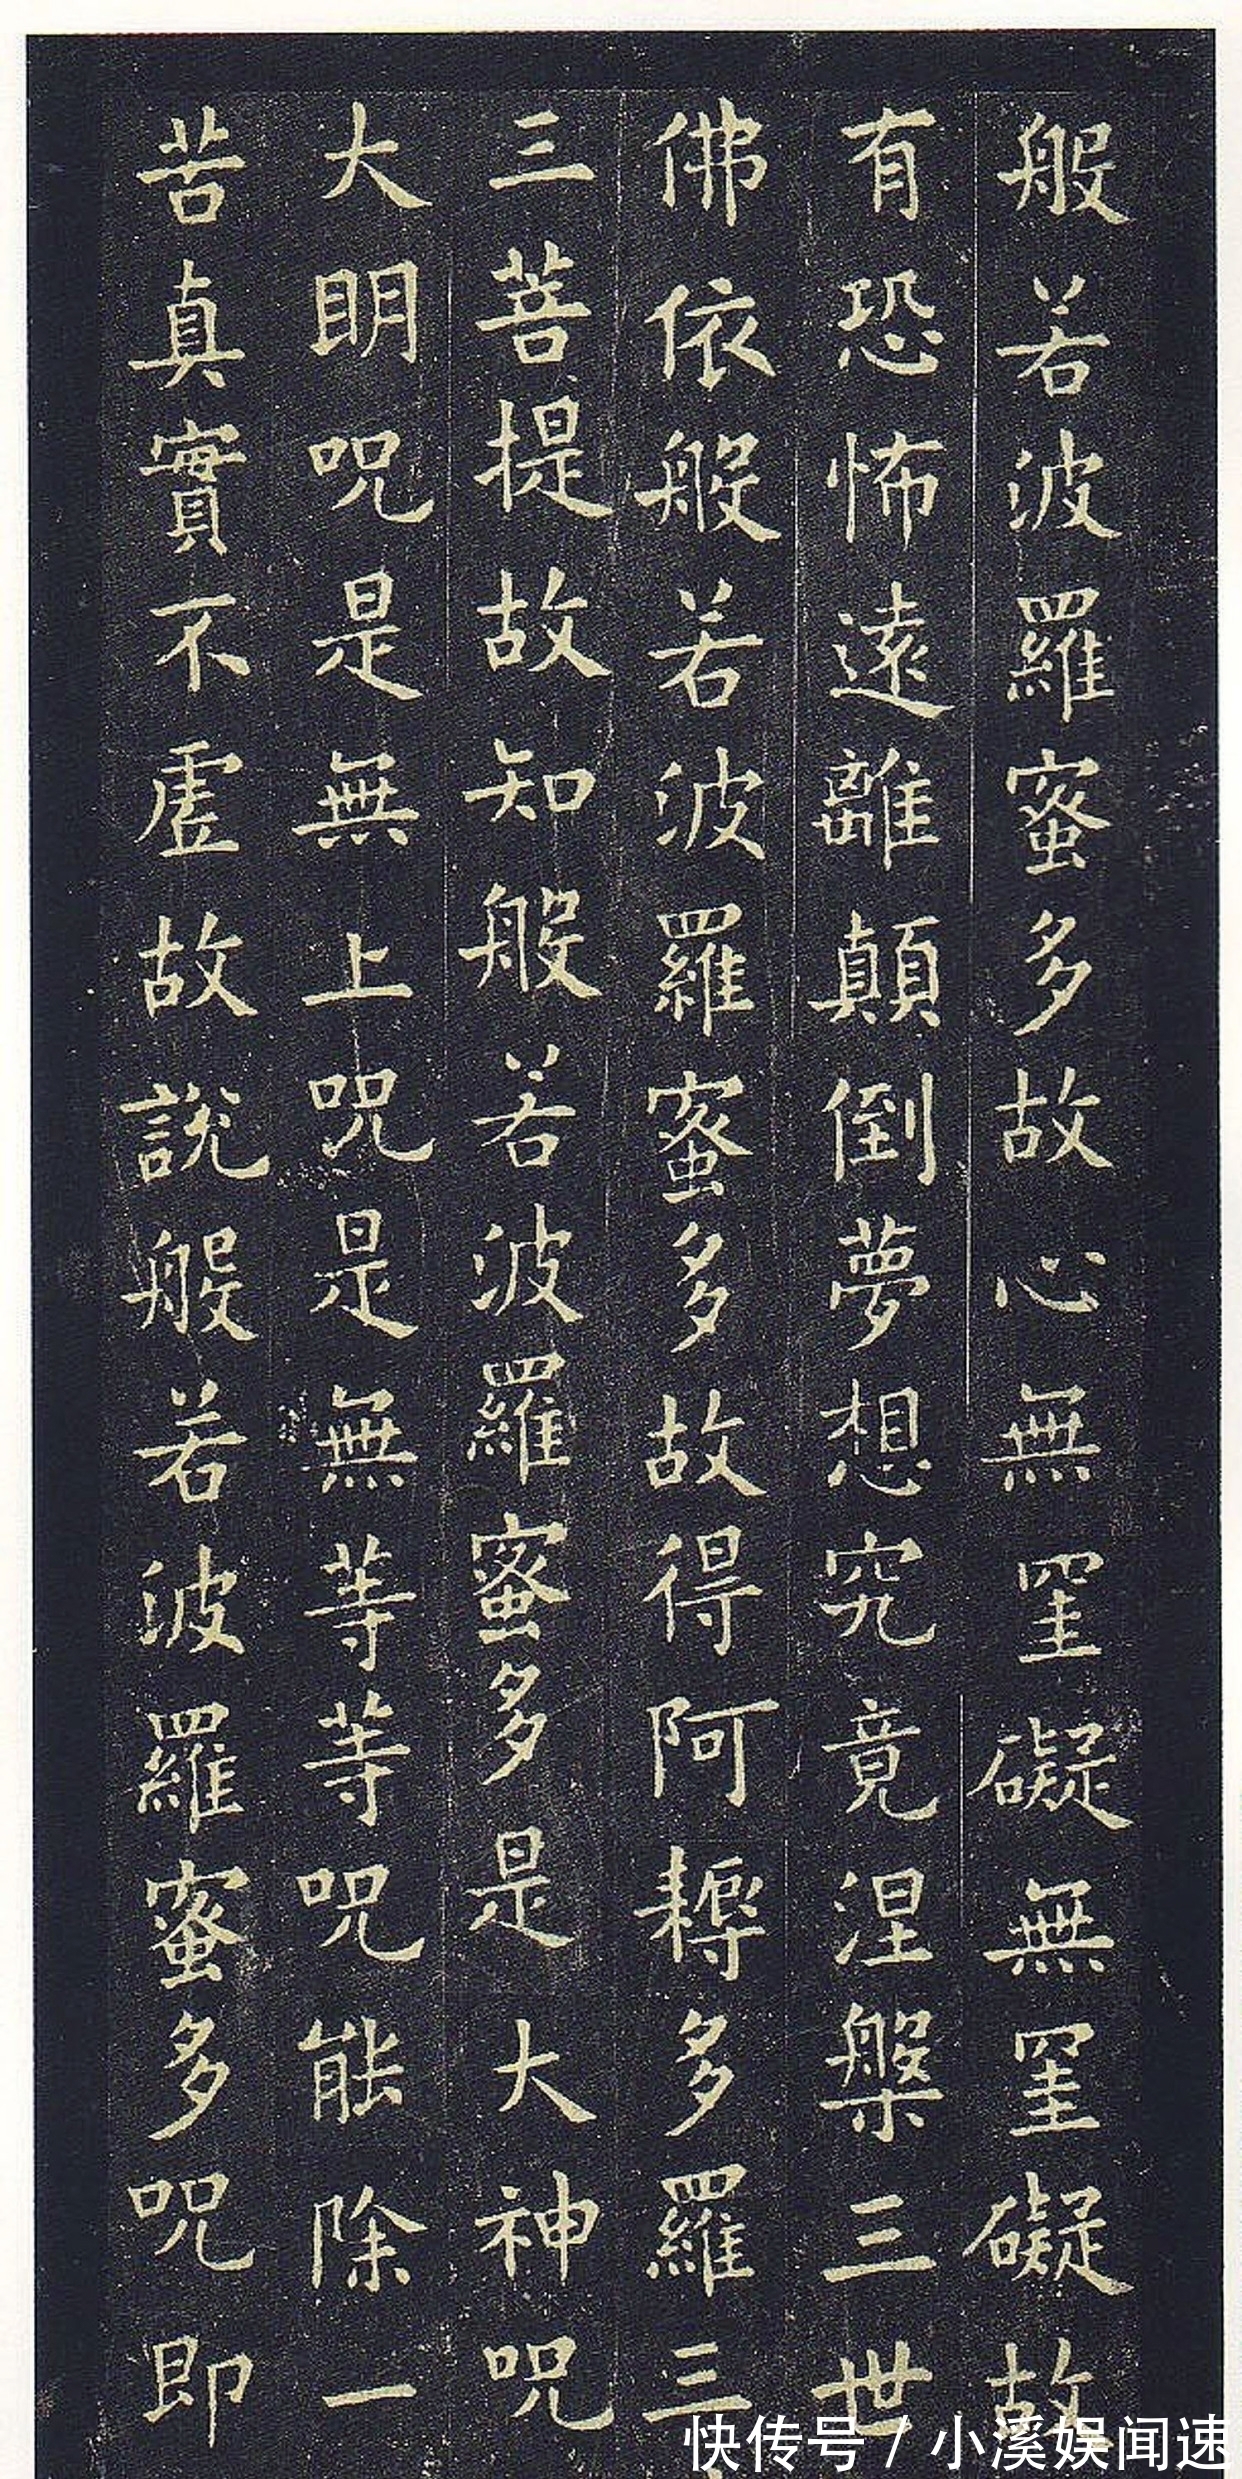 般若波羅蜜多故心無罣礙無罣礙故
有恐怖遠離顛倒夢想究竟涅槃三世
佛依般若波羅蜜多故得阿耨多羅三
三菩提故知般若波羅蜜多是大神咒
大明咒是無上咒是無等等咒能除一
苦真實不虛故說般若波羅蜜多咒即
快传号/小溪娱闻速